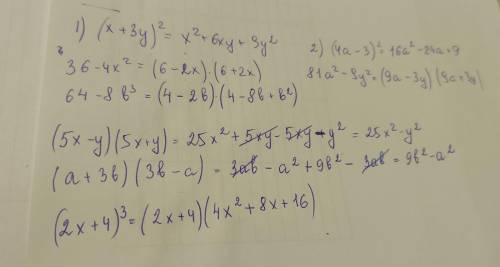 1) (x+3y)² = x²+6xy+9y²
36-4x² = (6-2x)·(6+2x)
64-8b³ = (4-2b)·(4-8b+b²)
2) (4a-3)² = 16a²-24a+9
81a²-9y² = (9a-3y)(9a+3y)
(5x-y)(5x+y) = 25x²+5xy-5xy-y² = 25x²-y²
(a+3b)(3b-a) = 3ab-a²+9b²-3ab = 9b²-a²
(2x+4)³ = (2x+4)(4x²+8x+16)